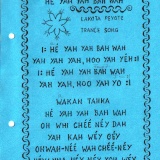 HE YAH YAH BAH WAH
LAKOTA PEYOTE
TRANCE SONG
|: HE YAH YAH BAH WAH
YAH YAH YAH, HOO YAH YEH :|
|: HE YAH YAH BAH WAH
YAH YAH, HOO YAH YO :|
WAKAN TANKA
OH WHI CHEE NEY DAY
YAH KAH WEY OEY
OHWAH-NEE WAH CHEE-NEY